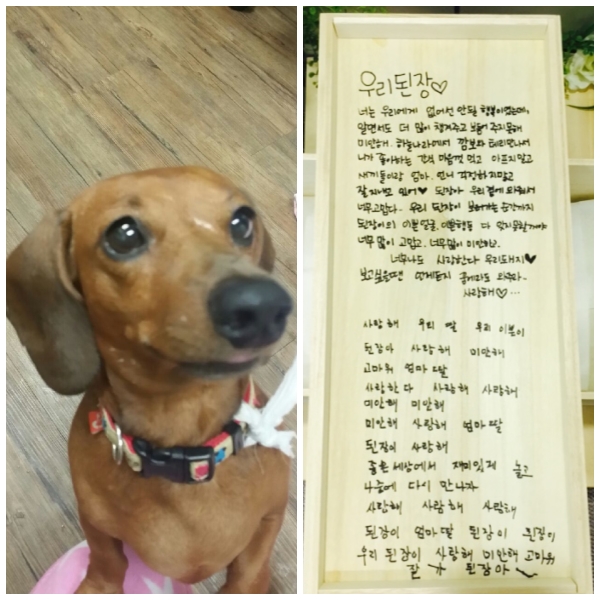 우리된장♡
너는 우리에게 없어선 안될 행복이었는데,
알면서도 더 많이 챙겨주고 보듬어 주지못해
미안하다. 하늘나라에서 깜보와 테리만나서
니가 좋아하는 간식 마음껏 먹고 아프지말고
새끼들이랑 엄마. 언니 걱정하지말고
잘지내고 있어♥ 된장아 우리 곁에 와줘서
너무고맙다. 우리 된장이 보내는 순간까지
된장이의 이쁜얼굴. 이쁜행동 다 잊지못할거야
너무많이 고맙고. 너무많이 미안하고.
너무나도 사랑한다 우리돼지♥
보고싶을땐 언제든지 꿈에라도 와주라..
사랑해♡...
사랑해 우리 딸 우리 이쁜이
된장아 사랑해 미안해
고마워 엄마 딸
사랑한다 사랑해 사랑해
미안해 미안해
미안해 사랑해 엄마딸
된장이 사랑해
좋은세상에서 재미있게 놀고
나중에 다시 만나자
사랑해 사랑해 사랑해
된장이 엄마딸 된장이 된장이
우리 된장이 사랑해 미안해 고마워
잘 가 된장아